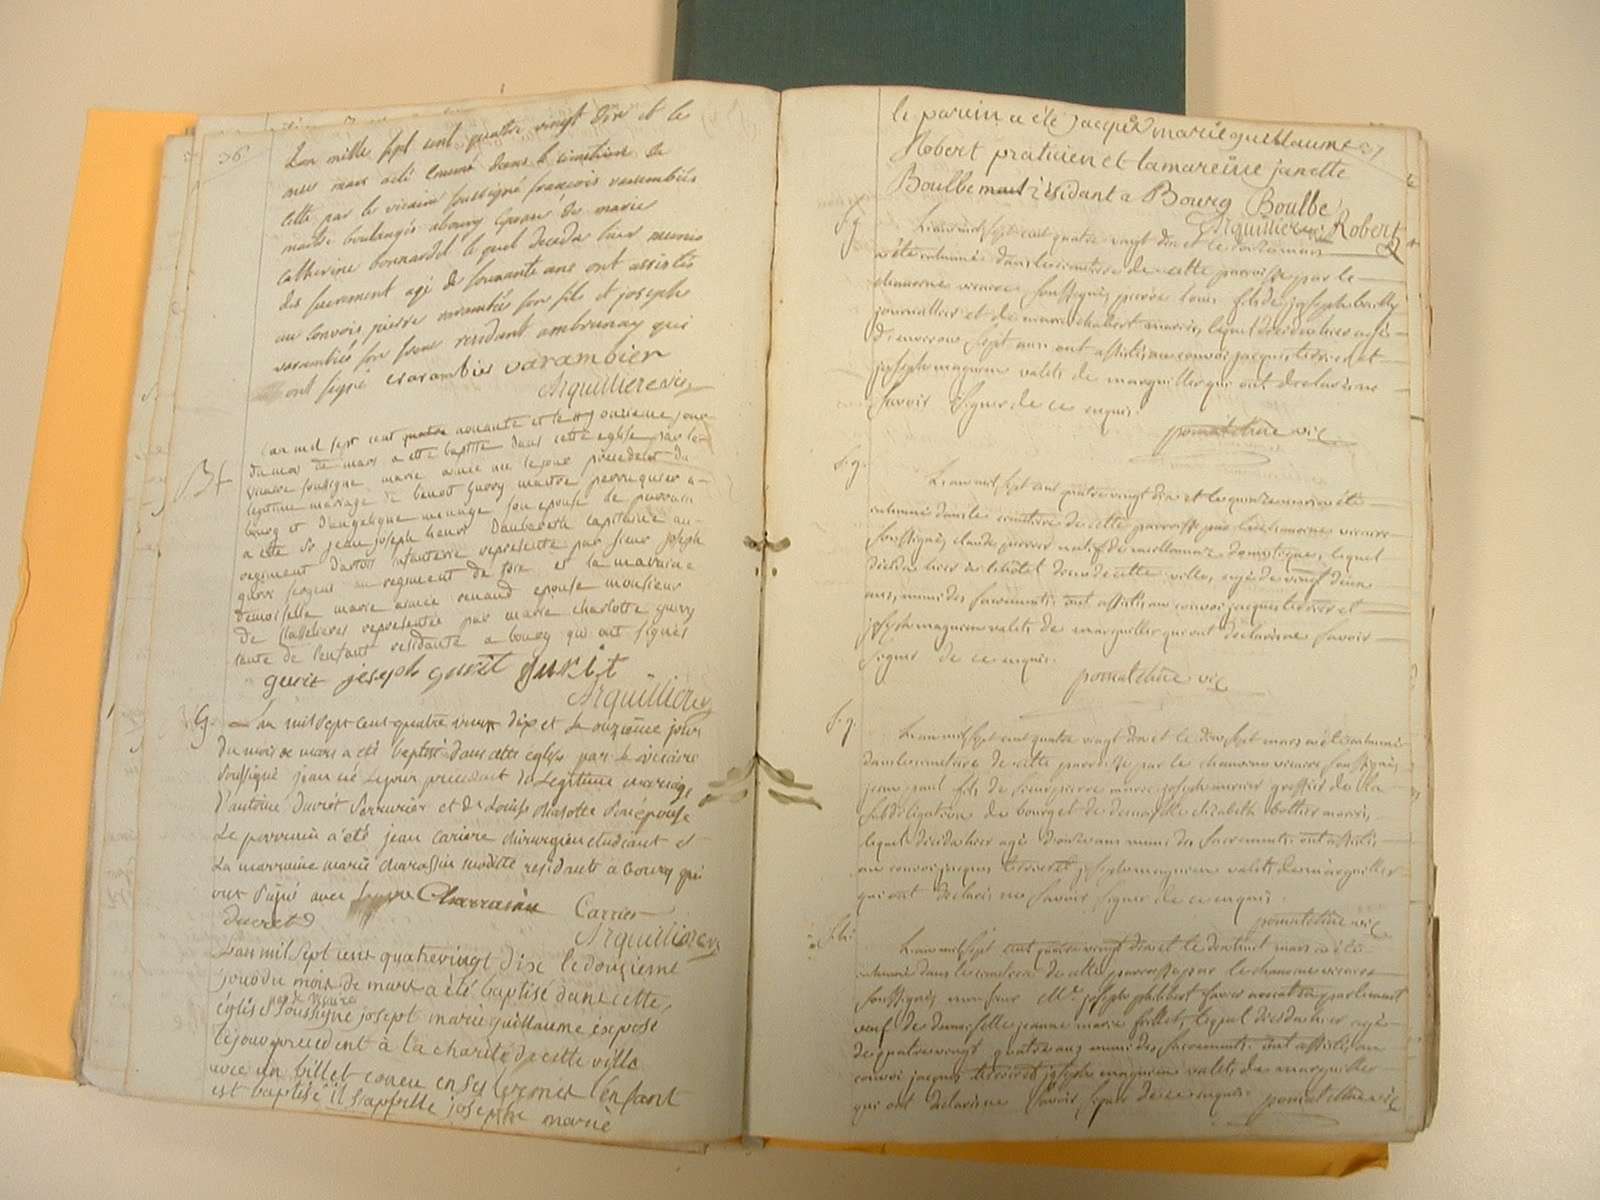 36
L'an mille sept cent quatre vingt dix et le
onze mars a été inhumé dans le cimetière de
cette par le vicaire soussigné françois varambiés
maitre boulangé a bourg époux de marie
catherine bonnardel lequel décéda hier munis
des sacrement agé de soixante ans ont assistés
au convois pierre varambiés son fils et joseph
varambiés son frere residant ambrunay qui
ont signé varambier varambier
Arguilliere vic
Bt
L'an mil sept cent nonante et le onzieme jour
du moi de mars a etté baptisé dans cette eglise par le
vicaire soussigné marie aimée née le jour precedent du
legitime mariage de benoit guvry maitre perruquier a
bourg et d'angelique menage son epouse le parrain
a etté Sr jean joseph henri Daubareth capitaine au
regiment d'artois infanterie representé par sieur joseph
guvry sergent au regiment de foix et la maraine
demoiselle marie aimée renaud epouse monsieur
de representée par marie charlotte guvry
tante de l'enfant residante a bourg qui ont signés
guvit joseph guvit guvit
Arguilliere v
G
L'an mil sept cent quatre vingt dix et le onzième jour
du mois de mars a été baptisé dans cette eglise par le vicaire
soussigné jean né le jour precedent du legitime mariage
d'antoine duvret serrurier et de Louise Charlotte son épouse
Le parrain a été jean cariere chirurgien etudiant et
La marraine marie charassin modiste residante à bourg qui
ont signé avec Charrasin Carrier
ducret Arguilliere v
L'an mil sept cent quatrevingt dix le douzieme
jour du mois de mars a été baptisé dans cette,
église par le vicaire soussigné josept marie guillaume exposé
le jour precedent à la charité de cette ville
avec un billet concu en ses termes l'enfant
est baptisé il s'appelle josephe marie
le parein a été jacque marie guillaume
Robert praticien et la mareine janette
Boulbe résidant a Bourg Boulbe
Arguilliere vic Robert
S. g.
L'an mil sept cent quatre vingt dix et le douze mars
a été inhumé dans le cimetiere de cette paroisse par le
chanoine vicaire soussigné, pierre louis fils de joseph bailly
journallier et de marie chabert mariés, lequel décéda hier agé
d'environ sept ans. ont assisté au convoi jacques terrier et
joseph magnien valets de marguillier qui ont declaré ne
savoir signer de ce enquis.
pomatchine vic
S. g.
L'an mil sept cent quatre vingt dix et le quinze mars a été
inhumé dans le cimetiere de cette parroisse par le chanoine vicaire
soussigné, claude natif de domestique, lequel
décéda hier à l'hôtel dieu de cette ville, agé de vingt deux
ans, muni des sacrements. ont assisté au convoi jacques terrier et
joseph magnien valets de marguillier qui ont déclaré ne savoir
signer de ce enquis.
pomatchine vic
S. g.
L'an mil sept cent quatre vingt dix et le dix sept mars a été inhumé
dans le cimetiere de cette parroisse par le chanoine vicaire soussigné,
jean paul fils de sieur pierre marie joseph morier greffier de la
subdélégation de bourg et de demoiselle elizabeth mariés,
lequel décéda hier agé d'onze ans muni des sacrements. ont assisté
au convoi jacques terrier et joseph magnien valets de marguillier
qui ont declaré ne savoir signer de ce enquis.
pomatchine vic
L'an mil sept cent quatre vingt dix et le dix huit mars a été
inhumé dans le cimetiere de cette parroisse par le chanoine vicaire
soussigné, Me. joseph philibert avocat en parlement
veuf de demoiselle jeanne marie frillet, lequel décéda hier agé
de quatre vingt quatre ans muni des sacrements. ont assisté au
convoi jacques terrier et joseph magnien valets de marguillier
qui ont declaré ne savoir signer de ce enquis. pomatchine vic